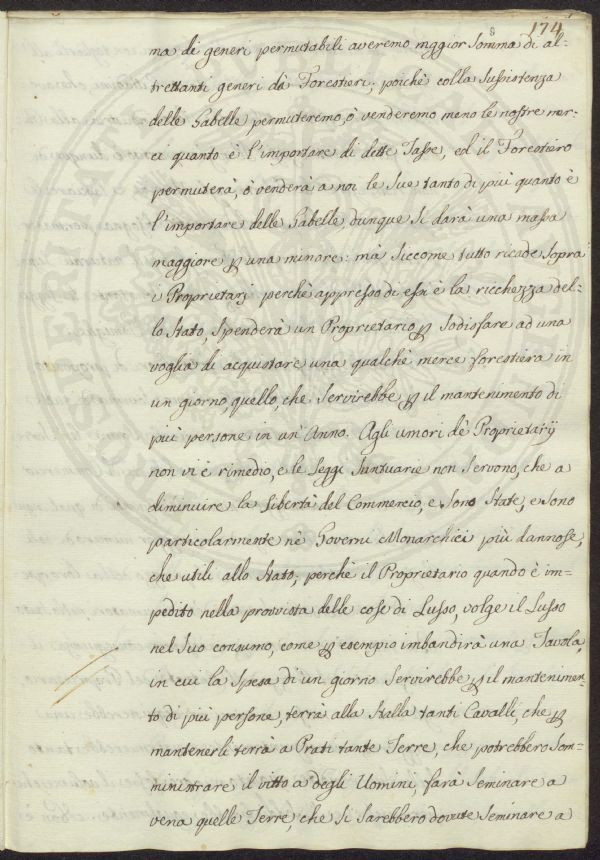 9 174
ma di generi permutabili averemo mggior somma di al=
trettanti generi dà Forestieri; poichè colla Sussistenza
delle Gabelle permuteremo, ò venderemo meno le nostre mer=
ci quanto è l'importare di dette Tasse, ed il Forestiero
permuterà, ò venderà a noi le Sue tanto di più quanto è
l'importare delle Gabelle, dunque Si darà una massa
maggiore ꝑ una minore: mà Siccome tutto ricade Sopra
i Proprietarj perchè appresso di essi è la ricchezza del=
lo Stato, Spenderà un Proprietario ꝑ Sodisfare ad una
voglia di acquistare una qualchè merce forestiera in
un giorno quello, che Servirebbe ꝑ il mantenimento di
più persone in un'Anno. Agli umori dè Proprietarij
non vi è rimedio, e le Leggi Suntuarie non Servono, che a
diminuire la Libertà del Commercio, e Sono State, e Sono
particolarmente nè Governi Monarchici più dannose,
che utili allo Stato; perchè il Proprietario quando è im=
pedito nella provvista delle cose di Lusso, volge il Lusso
nel Suo consumo, come ꝑ esempio imbandirà una Tavola,
in cui la Spesa di un giorno Servirebbe ꝑ il mantenimen=
to di più persone, terrà alla Stalla tanti Cavalli, che ꝑ
mantenerli terrà a Prati tante Terre, che potrebbero Som=
ministrare il vitto a degli Uomini, farà Seminare a
vena quelle Terre, che Si Sarebbero dovute Seminare a